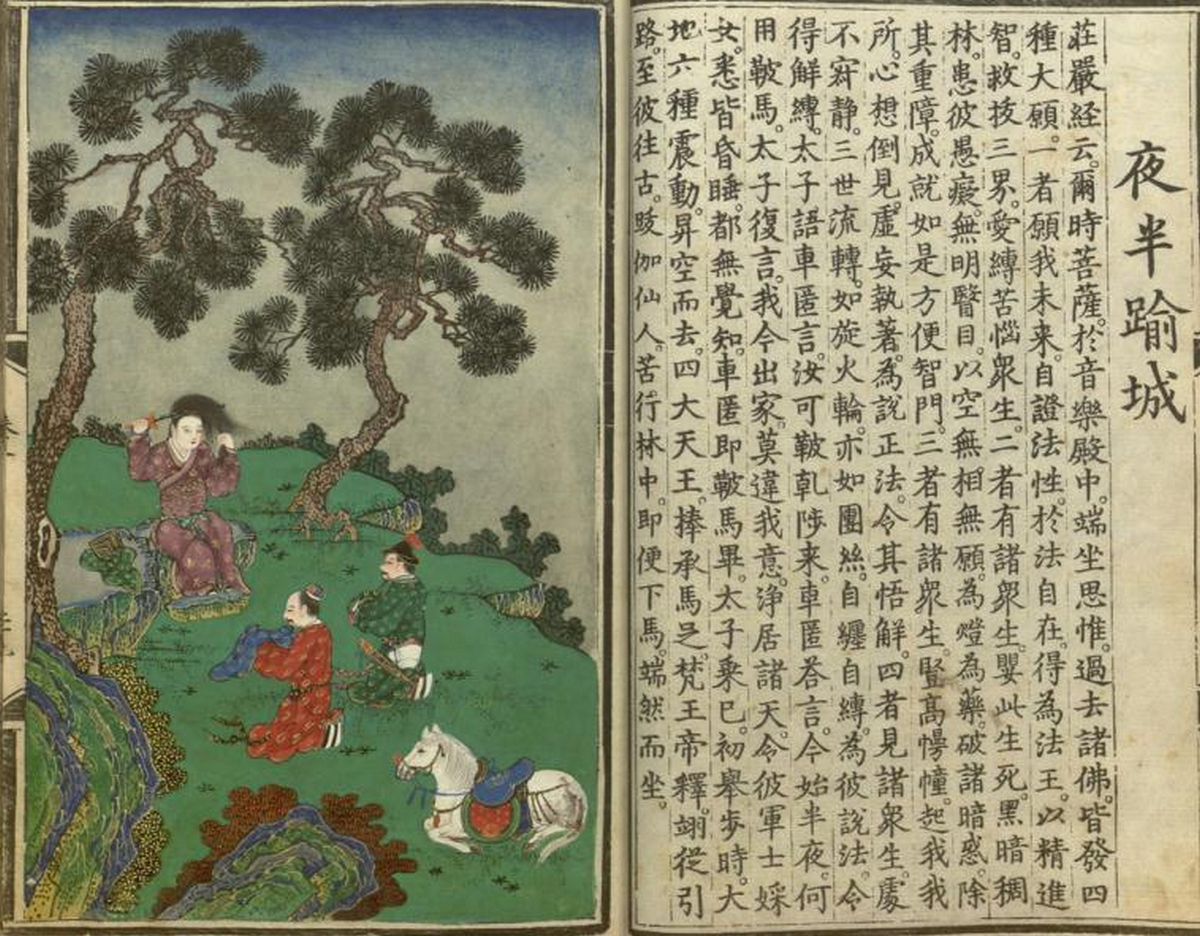 夜半踰城
莊嚴経云。爾時菩薩。於音樂殿中。端坐思惟。過去諸佛。皆發四
種大願。一者願我未来。自證法性。於法自在。得為法王。以精進
智。救拔三界。愛縛苦惱衆生。二者有諸衆生。嬰此生死。黑暗稠
林。患彼愚癡。無明瞖目。以空無相無願。為燈為藥。破諸暗惑。除
其重障。成就如是方便智門。三者有諸衆生。竪髙㡢幢。起我我
所。心想倒見。虛妄執著。為說正法。令其悟解。四者見諸衆生。處
不寂静。三世流轉。如旋火輪。亦如團絲。自纒自縛。為彼說法。令
得解縛。太子語車匿言。汝可鞁乹陟来。車匿荅言。今始半夜。何
用鞁馬。太子復言。我今出家。莫違我意。淨居諸天。令彼軍士婇
女。悉皆昏睡。都無覺知。車匿即鞁馬畢。太子乘已。初舉步時。大
地六種震動。昇空而去。四大天王。捧承馬足。梵王帝釋。翊從引
路。至彼往古。跋伽仙人。苦行林中。即便下馬。端然而坐。